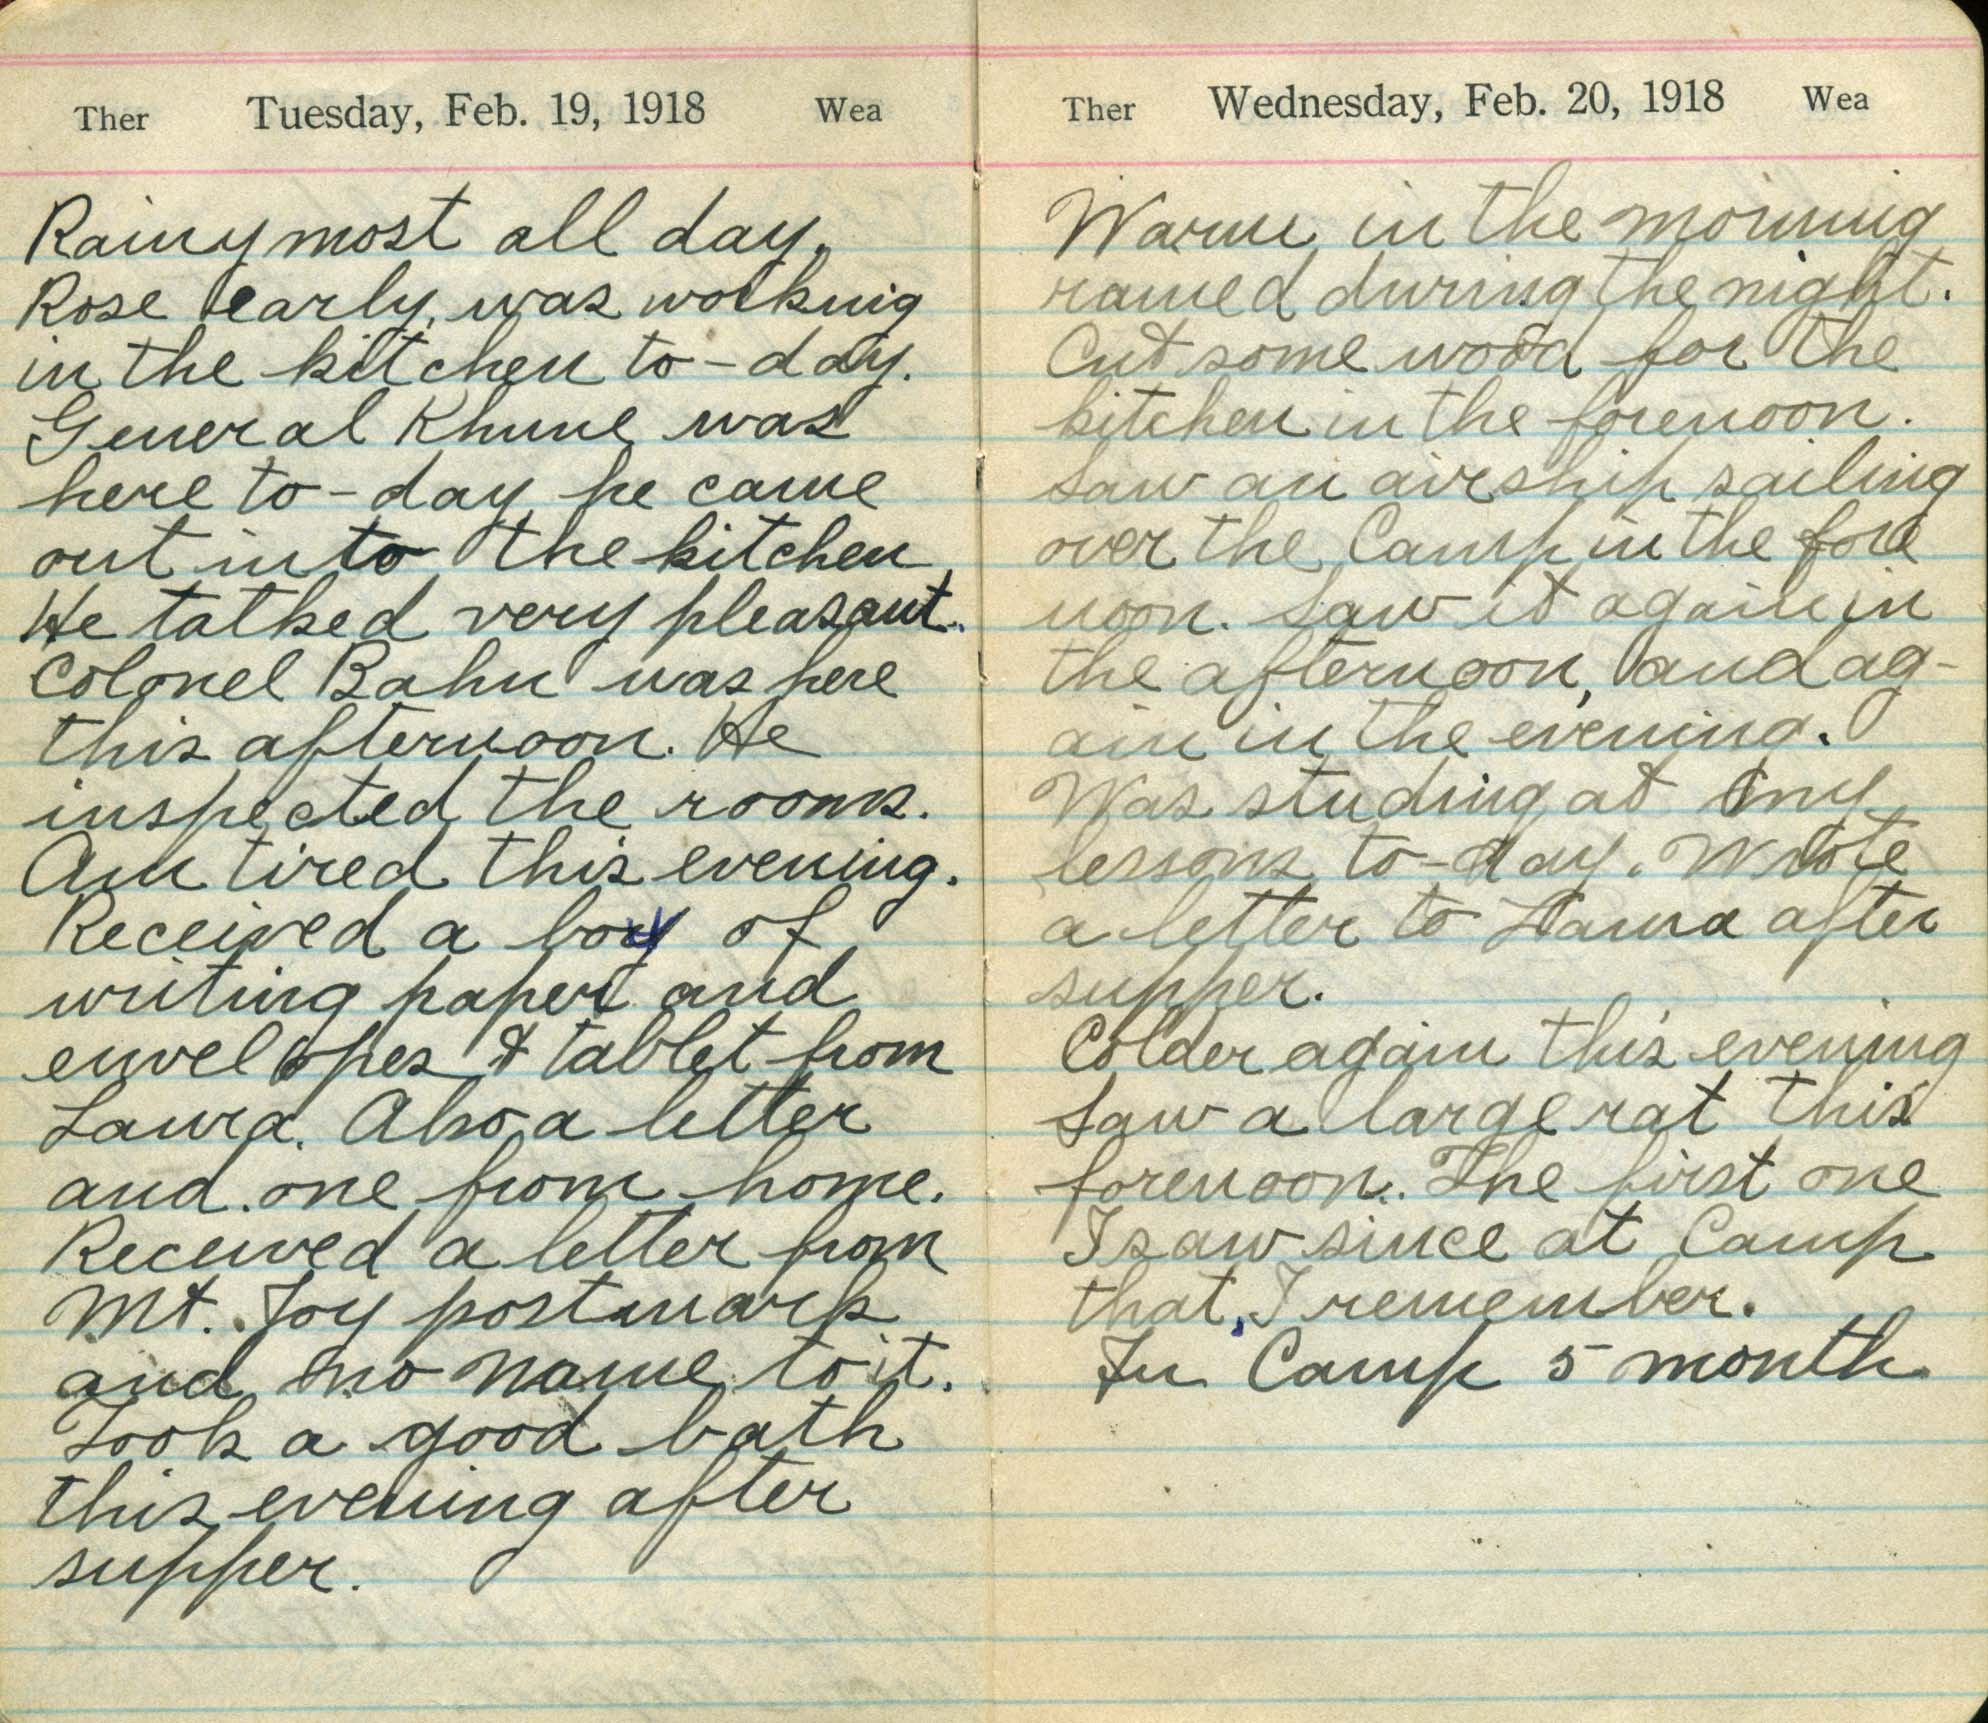 Ther Tuesday, Feb. 19, 1918 Wea
Rainy most all day.
Rose early, was working
in the kitchen to-day.
General Khune was
here to-day he came
out into the kitchen
He talked very pleasant.
Colonel Bahn was here
this afternoon. He
inspected the rooms.
Am tired this evening.
Received a box of
writing paper and
envelopes & tablet from
Laura. Also a letter
and one from home.
Received a letter from
Mt. Joy postmark
and no name to it.
Took a good bath
this evening after
supper.
Ther Wednesday, Feb. 20, 1918 Wea
Warm in the morning
rained during the night.
Cut some wood for the
kitchen in the forenoon.
Saw an airship sailing
over the Camp in the fore
noon. Saw it again in
the afternoon, and ag-
ain in the evening.
Was studing at my
lessons to-day. Wrote
a letter to Laura after
supper.
Colder again this evening
Saw a large rat this
forenoon. The first one
I saw since at Camp
that, I remember.
In Camp 5 month